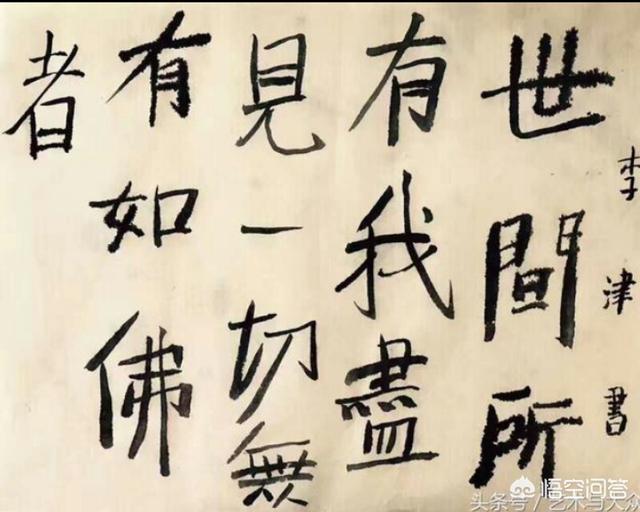 世間所
有我盡
見一切無
有如佛
者
李津書
悟空问答
头条号/艺术与大众